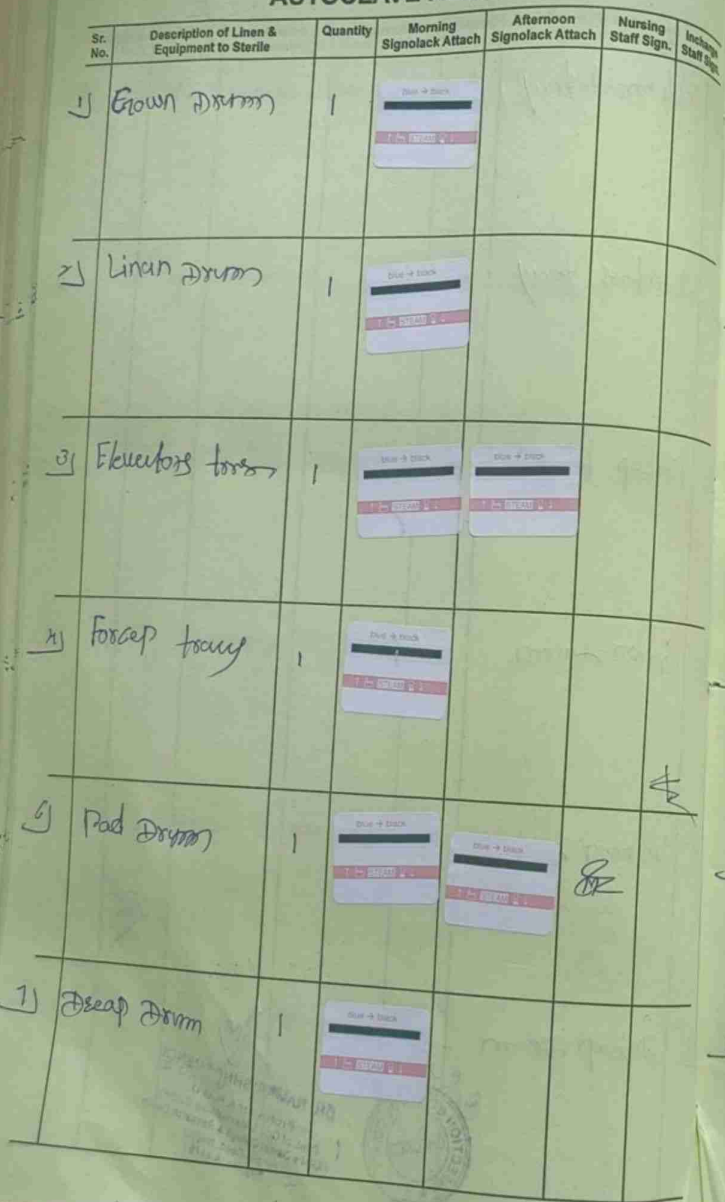 Sr. No. Description of Linen & Equipment to Sterile Quantity Morning Signolack Attach Afternoon Signolack Attach Nursing Staff Sign. Incharge Staff Sign.
1) Gown Drum 1
blue → black
STEAM
2) Linan Drum 1
blue → black
STEAM
3) 1
blue → black blue → black
STEAM STEAM
4) Forcep tray 1
blue → black
STEAM
Pad Drum 1
blue → black blue → black
STEAM STEAM
7) Drum 1
blue → black
STEAM